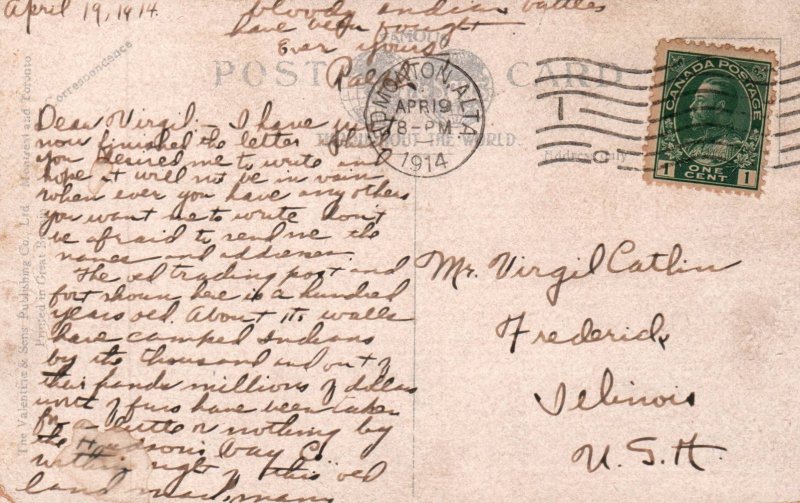 April 19, 1914
bloody indian battles
have been fought
Ever yours
Ralph
Correspondence
FAMOUS
POST CARD
THROUGHOUT THE WORLD.
Address Only
EDMONTON, ALTA
APR 19
8-PM
1914
CANADA POSTAGE
1 ONE CENT 1
Dear Virgil:- I have
now finished the letter
you desired me to write and
hope it will not be in vain
when ever you have any others
you want me to write don't
be afraid to send me the
names and addresses.
The old trading post and
fort shown here is a hundred
years old. About its walls
have camped Indians
by the thousand and out of
their hands millions of dollars
worth of furs have been taken
for a little or nothing by
the Hudson's Bay Co.
within sight of this old
land mark many
Mr. Virgil Catlin
Frederick
Illinois
U.S.A.
The Valentine & Sons Publishing Co., Ltd. Montreal and Toronto
Printed in Great